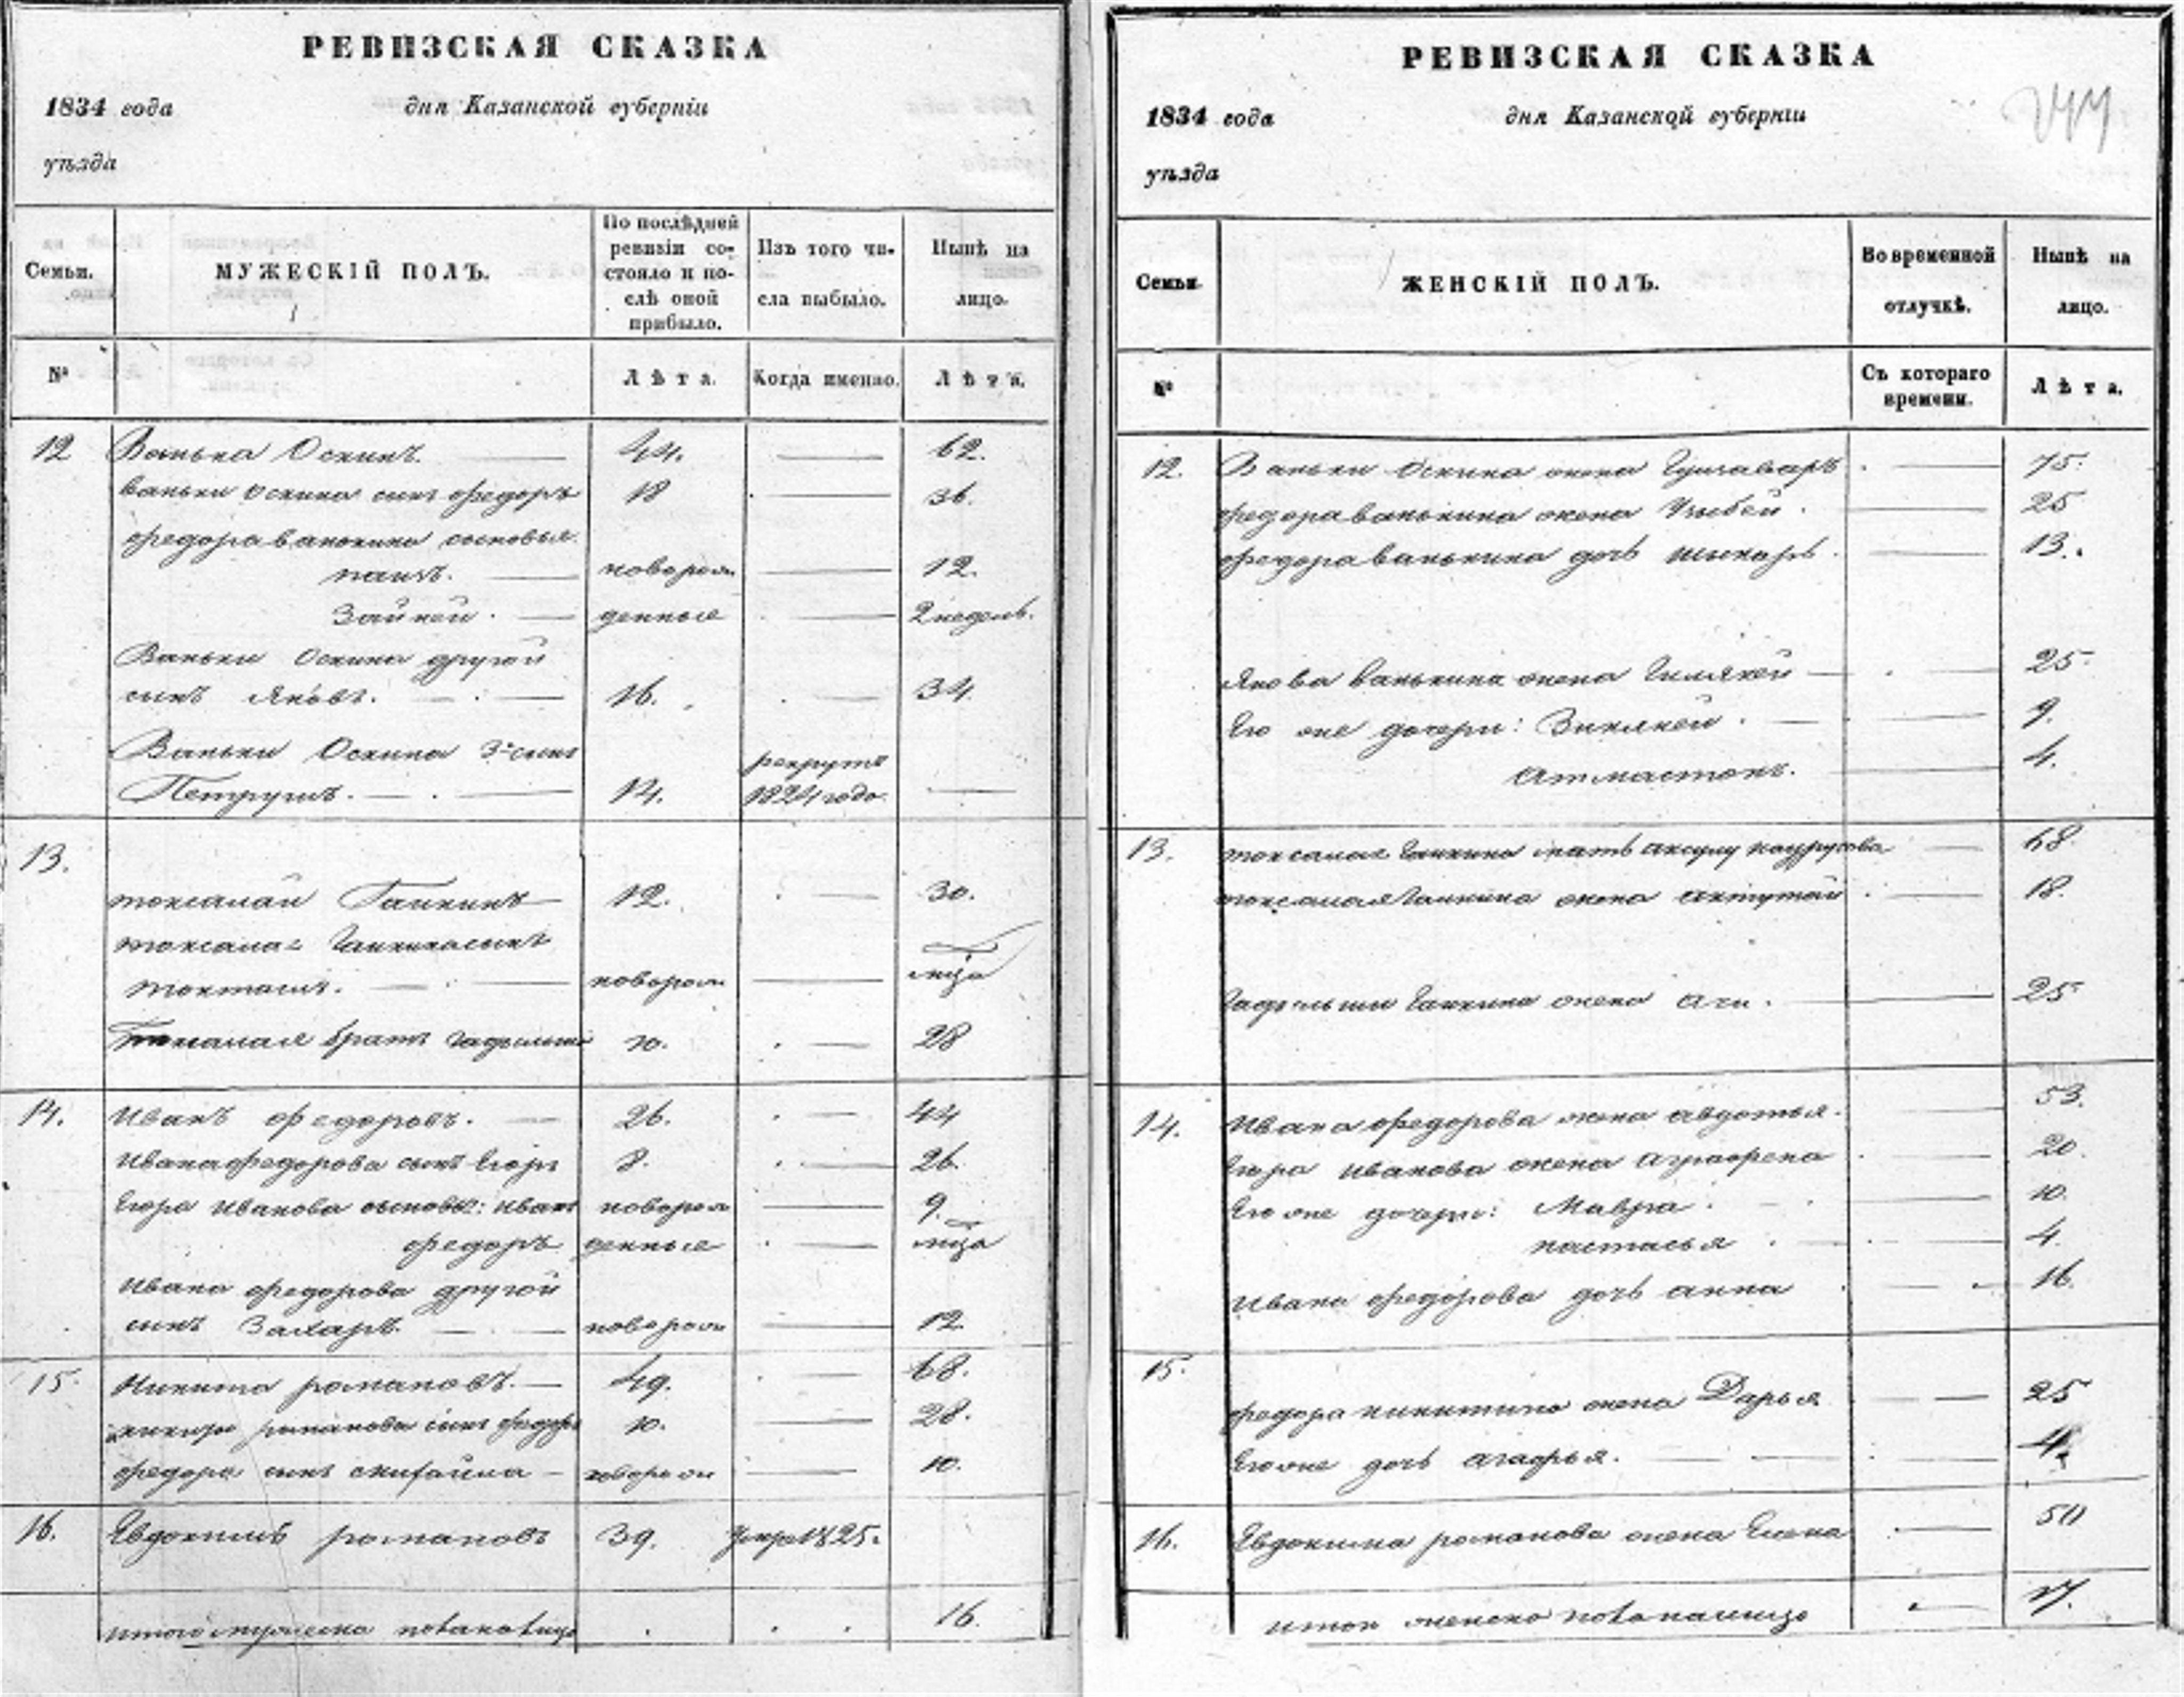 РЕВИЗСКАЯ СКАЗКА
1834 года дня Казанской губерніи
уѣзда
Семьи. МУЖЕСКІЙ ПОЛЪ. По послѣдней ревизіи со- Изъ того чи- Нынѣ на
стояло и по- слѣ оной прибыло. сла выбыло. лицо.
№ Лѣта. Когда именно. Лѣта.
12 Ванька Оскинъ. 44. 62.
Ваньки Оскина сынъ Федоръ 18 36.
Федора Ванькина сыновья
новорож 12.
Зайкей. денные 2 недель.
Ваньки Оскина другой
сынъ Яковъ. 16. 34.
Ваньки Оскина 3й сынъ рекрутъ
Петрушъ. 14. 1824 года
13.
Токсамай Ганкинъ 12. 30.
Токсамая Ганкина сынъ
Токташъ. новорож м-ца
Токсамая братъ 10. 28
14. Иванъ Федоровъ. 26. 44
Ивана Федорова сынъ Егоръ 8. 26.
Егора Иванова сыновья: Иванъ новорож 9.
Федоръ денные м-ца
Ивана Федорова другой
сынъ Захаръ. новорож 12.
15. Никита Романовъ. 49. 68.
Романова сынъ Федоръ 10. 28.
Федора сынъ новорож 10.
16. Евдокимъ Романовъ 39. Умре 1825.
итого мужеска пола на лицо 16.
РЕВИЗСКАЯ СКАЗКА
1834 года дня Казанской губерніи
уѣзда
Семьи. ЖЕНСКІЙ ПОЛЪ. Во временной Нынѣ на
отлучкѣ. лицо.
№ Съ котораго времени. Лѣта.
12. Ваньки Оскина жена 75.
Федора Ванькина жена 25
Федора Ванькина дочь 13.
Якова Ванькина жена 25.
Его же дочери: 9.
4.
13. Токсамая Ганкина мать 68.
Токсамая Ганкина жена Актутай 18.
Ганкина жена 25
14. Ивана Федорова жена Авдотья. 53.
Егора Иванова жена Аграфена 20.
Его же дочери: Мавра. 10.
Настасья 4.
Ивана Федорова дочь Анна 16.
15.
Федора Никитина жена Дарья 25
Его же дочь Агафья.
16. Евдокима Романова жена Елена 50
итого женска пола на лицо 17.